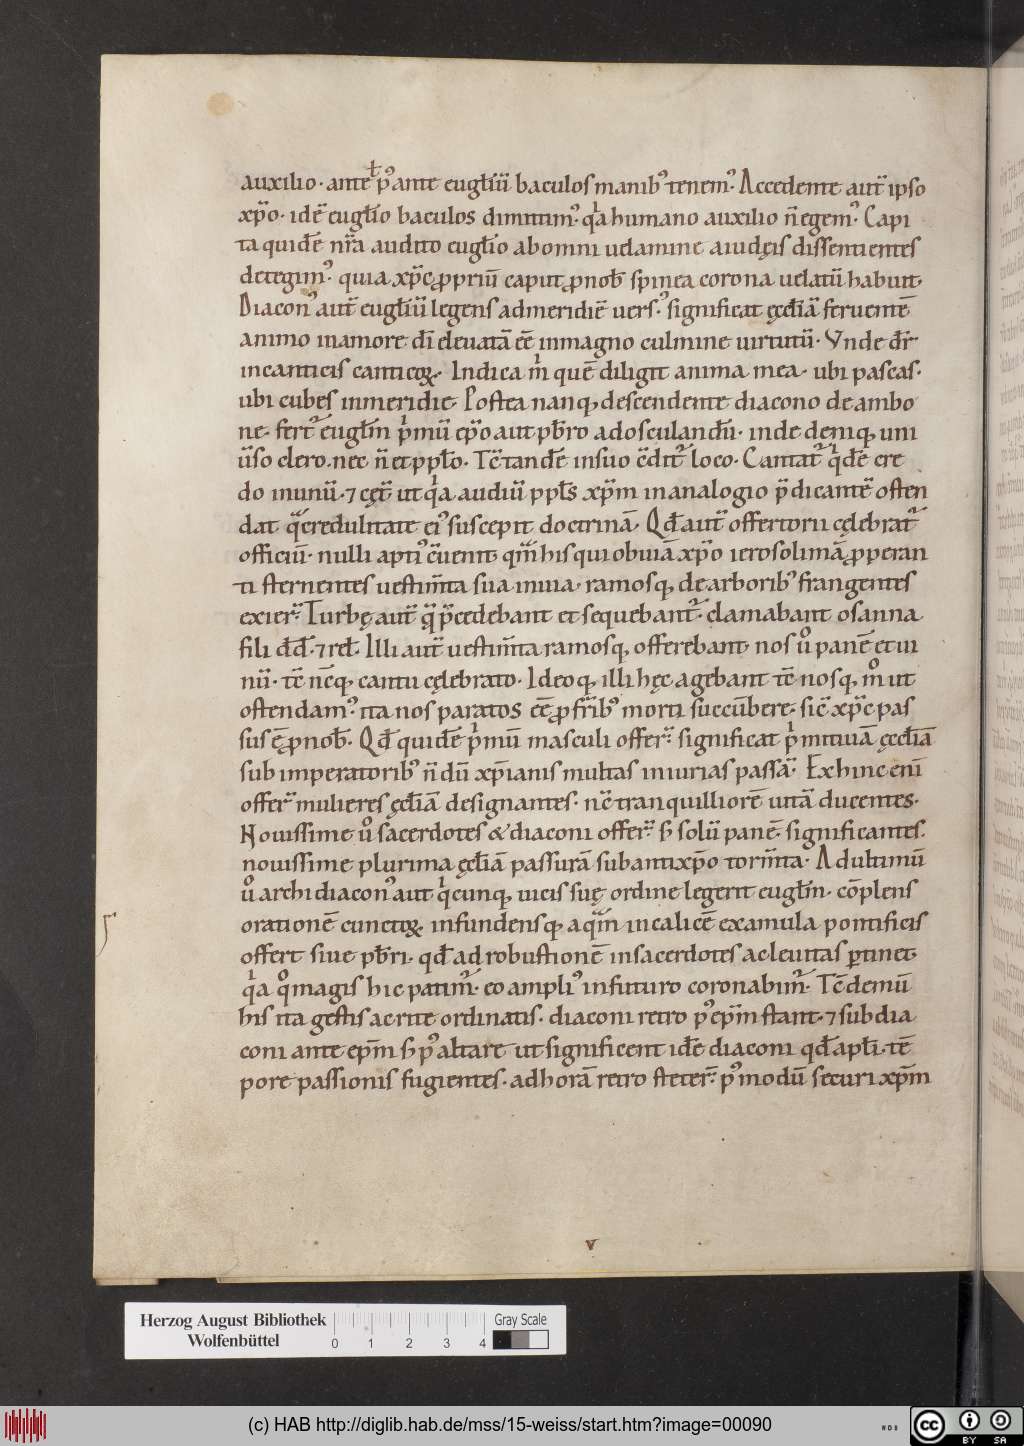 auxilio· ante ł p᷒ ante eugl̄iū baculos manib᷒ tenem᷒· Accedente aut̄ ipso
xp̄o· idē eugl̄io baculos dimittim᷒· qⁱa humano auxilio n̄ egem᷒· Capi
ta quidē nr̄a audito eugl̄io ab omni uelamine aiudęis dissentientes
detegim᷒· quia xp̄c ꝓpriū caput ꝓ nob̄ spinea corona uelatū habuit·
Diacon᷒ aut̄ eugl̄iū legens ad meridiē uers᷒· significat ęcl̄iā feruentē
animo in amore dī eleuatā ēē in magno culmine uirtutū· Vnde dr̄
in canticis canticoꝝ· Indica mⁱ quē diligit anima mea· ubi pascas·
ubi cubes in meridie· Postea nanq; descendente diacono de ambo
ne· fert᷒ eugl̄m pⁱmū ep̄o aut pb̄ro ad osculandū· inde deniq; uni
ūso clero· nec n̄ et ppl̄o· Tc̄ tandē in suo c̄dit᷒ loco· Cantat᷒ qⁱdē cre
do in unū· ⁊ cęt̄ ut qⁱa audiū ppl̄s xp̄m in analogio p̄dicantē osten
dat qᷓ credulitate ei᷒ suscepit doctrinā· Qd̄ aut̄ offertorii cęlebrat᷒
officiū· nulli apti᷒ c̄uenit qᷓm his qui obuiā xp̄o ierosolimā ꝓperan
ti sternentes uestim̄ta sua in uia· ramosq; de arborib᷒ frangentes
exier̄· Turbę aut̄ qᷓ p̄cedebant et sequebant᷒· clamabant osanna
fili dd̄· ⁊ rel̄· Illi aut̄ uestim̄ta ramosq; offerebant· nos uͦ panē et ui
nū· tc̄ nēq; cantu cęlebrato· Ideoq; illi hęc agebant tc̄ nosq; mͦ ut
ostendam᷒· ita nos paratos ēē ꝓ fr̄ib᷒ morti succūbere· sic̄ xp̄c pas
sus ē ꝓ nob̄· Qd̄ quidē pⁱmū masculi offer̄· significat pⁱmitiuā ęcl̄iā
sub imperatorib᷒ n̄dū xp̄ianis multas iniurias passā· Exhinc enī
offer̄ mulieres ęcl̄iā designantes· nc̄ tranquilliorē uitā ducentes·
Nouissime uͦ sacerdotes & diaconi offer̄· s̄ solū panē· significantes·
nouissime plurima ęcl̄iā passurā sub antixp̄o torm̄ta· Ad ultimū
uͦ archidiacon᷒ aut qⁱcunq; uicis suę ordine legerit eugl̄m· cōplens
orationē cunctoꝝ· infundensq; aqᷓm in calicē ex amula pontificis
offert siue pb̄ri· qd̄ ad robustionē in sacerdotes ac leuitas ꝑtinet·
qⁱa qͦ magis hic patim᷒· eo ampli᷒ in futuro coronabim᷒· Tc̄ demū
his ita gestis ac rite ordinatis· diaconi retro p᷒ ep̄m stant· ⁊ subdia
coni ante ep̄m s̄ p᷒ altare ut significent idē diaconi qd̄ apl̄i· tē
pore passionis fugientes· ad horā retro steter̄· p᷒modū securi xp̄m
v
Herzog August Bibliothek
Wolfenbüttel
0 1 2 3 4
Gray Scale
(c) HAB http://diglib.hab.de/mss/15-weiss/start.htm?image=00090
WDB
cc BY SA